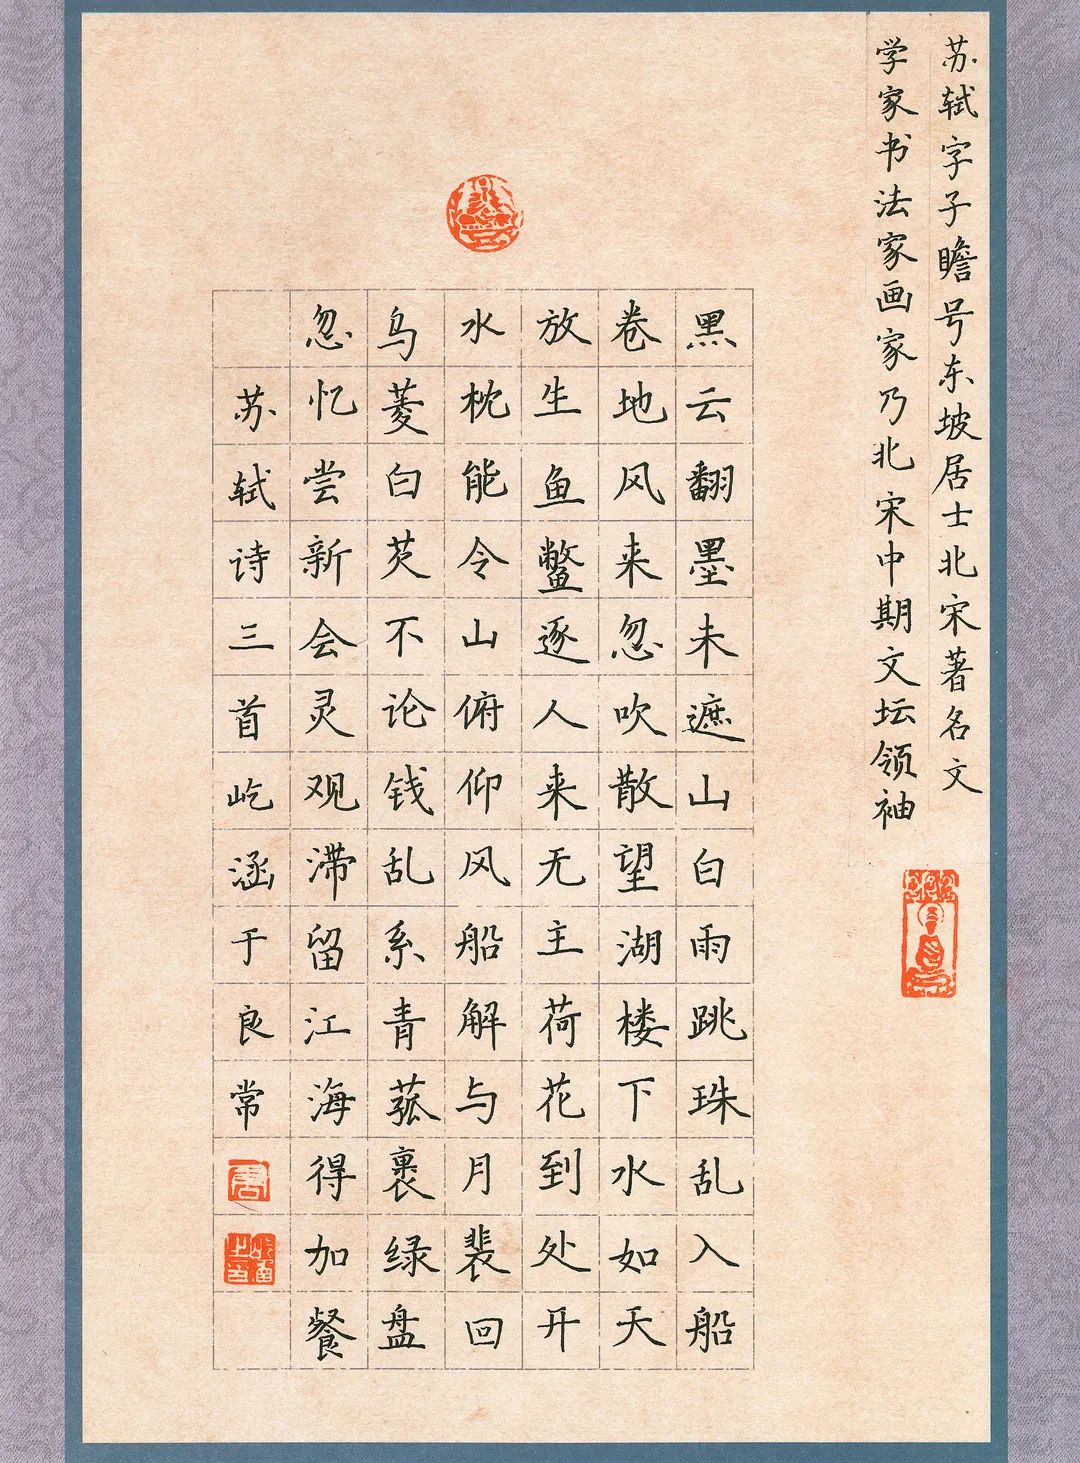 苏轼字子瞻号东坡居士北宋著名文
学家书法家画家乃北宋中期文坛领袖
黑云翻墨未遮山白雨跳珠乱入船
卷地风来忽吹散望湖楼下水如天
放生鱼鳖逐人来无主荷花到处开
水枕能令山俯仰风船解与月裴回
乌菱白芡不论钱乱系青菰裹绿盘
忽忆尝新会灵观滞留江海得加餐
苏轼诗三首屹涵于良常